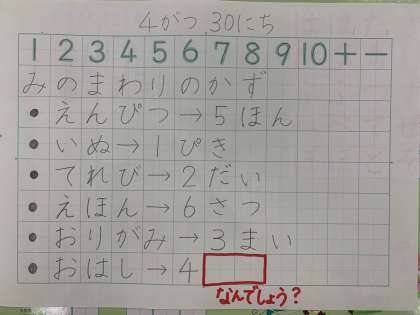 4がつ 30にち
1 2 3 4 5 6 7 8 9 10 + −
みのまわりのかず
・えんぴつ→5ほん
・いぬ→1ぴき
・てれび→2だい
・えほん→6さつ
・おりがみ→3まい
・おはし→4
なんでしょう?